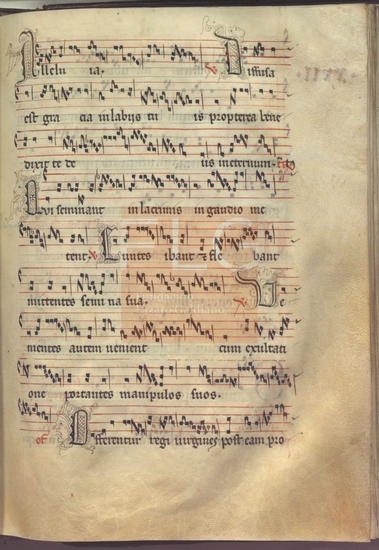 Allelu ia. ℣ Diffusa
est gra cia in labijs tu is propterea bene
dixit te de us in eternum. Tct9
Qui seminant in lacrimis in gaudio me
tent. ℣ Euntes ibant & fle bant
mittentes semi na sua. ℣ Ve
nientes autem venient cum exultati
one portantes manipulos suos.
Of. Offerentur regi uirgines post eam pro